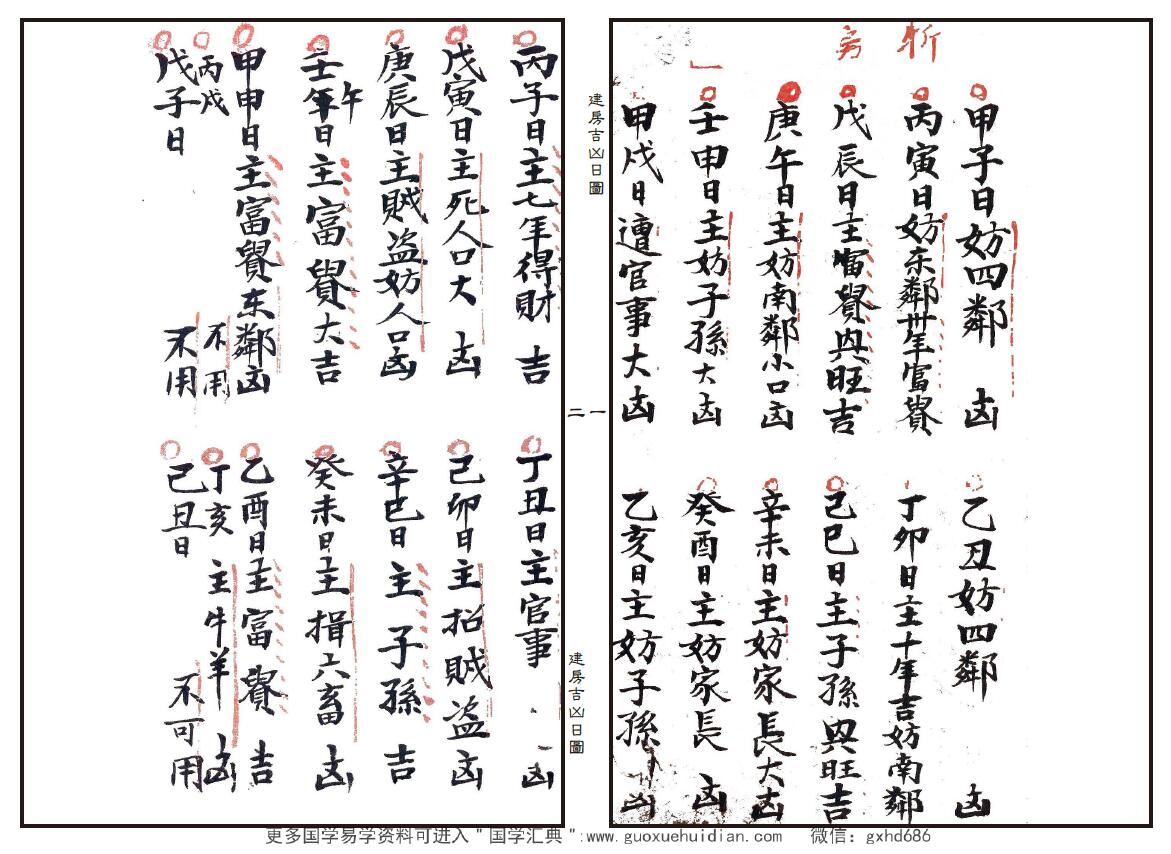 斬
房
一
甲子日妨四鄰 凶
丙寅日妨东鄰卅年富貴
戊辰日主富貴興旺吉
庚午日主妨南鄰小口凶
壬申日主妨子孫大凶
甲戌日遭官事大凶
乙丑妨四鄰 凶
丁卯日主十年吉妨南鄰
己巳日主子孫興旺吉
辛未日主妨家長大凶
癸酉日主妨家長 凶
乙亥日主妨子孫 凶
建房吉凶日圖
一
二
建房吉凶日圖
丙子日主七年得財 吉
戊寅日主死人口大凶
庚辰日主賊盗妨人口凶
壬午年日主富貴大吉
甲申日主富貴东鄰凶
丙戌 不用
戊子日 不用
丁丑日主官事 凶
己卯日主招賊盗凶
辛巳日主子孫 吉
癸未日主損六畜 凶
乙酉日主富貴 吉
丁亥 主牛羊 凶
己丑日 不可用
更多国学易学资料可进入＂国学汇典＂:www.guoxuehuidian.com 微信：gxhd686